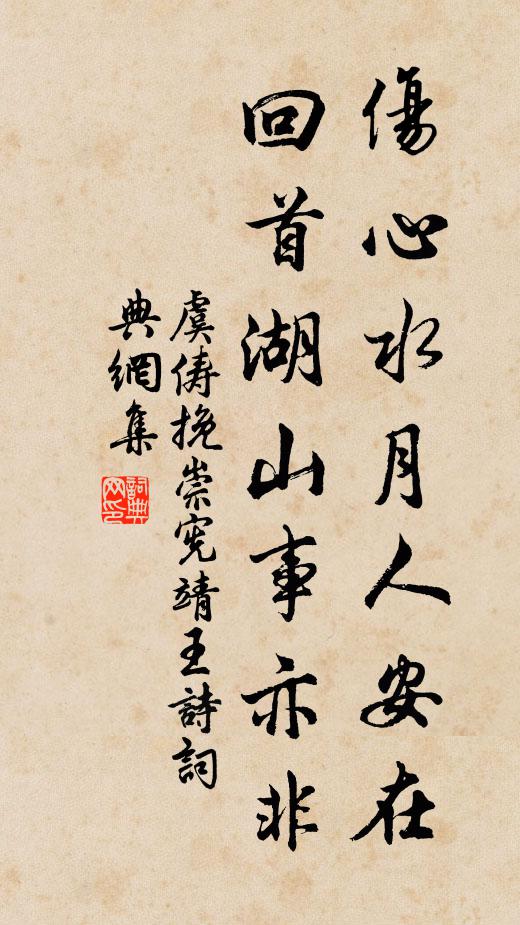 傷心水月人安在
回首湖山事亦非
虞儔挽崇憲靖王詩詞
典網集
詞典
网印